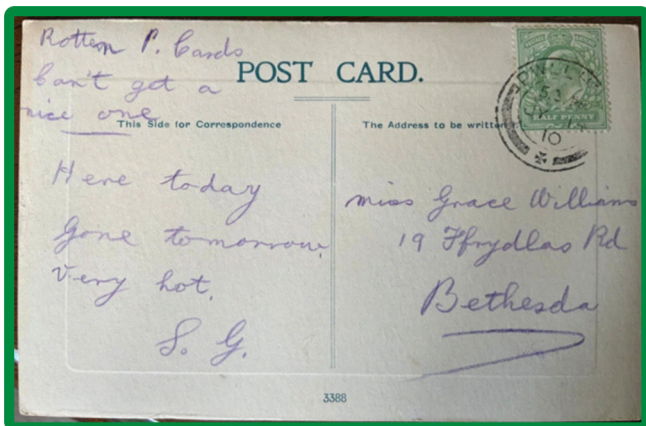 Rotten P. Cards
Can't get a
nice one
POST CARD.
This Side for Correspondence
The Address to be written
HALF PENNY
10
Here today
Gone tomorrow.
Very hot.
S. G.
Miss Grace Williams
19 Ffrydlas Rd
Bethesda
3388